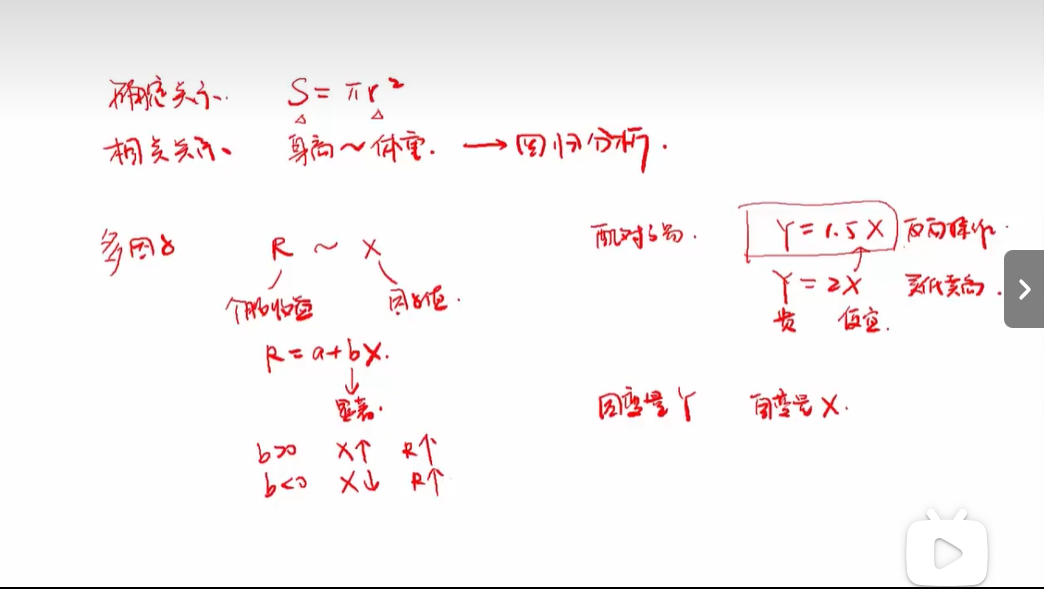 确定关系. S = πr²
相关关系、 身高~体重. → 回归分析.
多因子 R ~ X
个股收益 因子值.
R = a+bX.
显著.
b>0 X↑ R↑
b<0 X↓ R↑
配对交易. Y = 1.5X 反向操作.
Y = 2X 买低卖高.
贵 便宜.
因变量Y 自变量X.